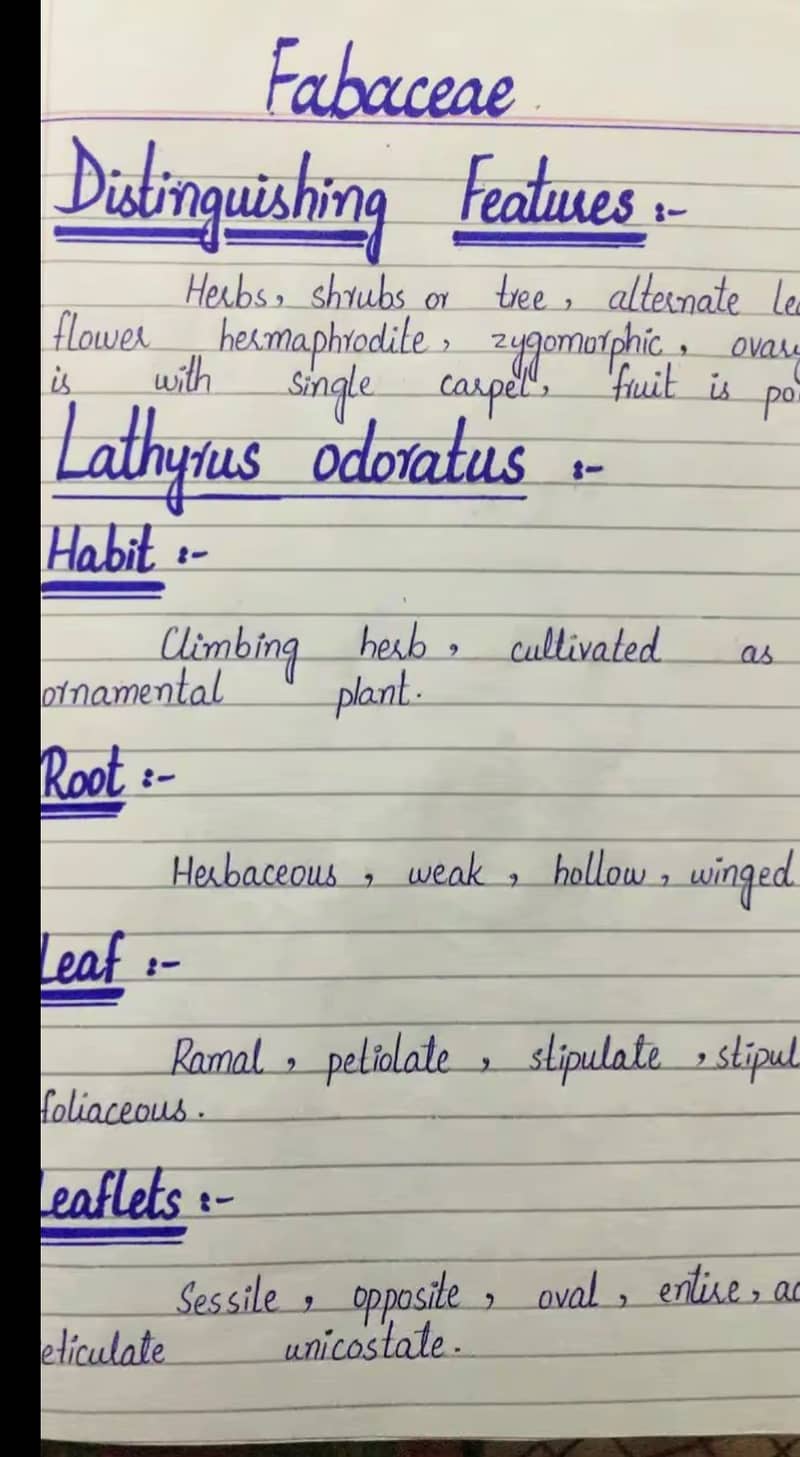 Fabaceae
Distinguishing Features :-
Herbs, shrubs or tree, alternate
flower hermaphrodite, zygomorphic, ovary
is with single carpel, fruit is
Lathyrus odoratus :-
Habit :-
Climbing herb, cultivated as
ornamental plant.
Root :-
Herbaceous, weak, hollow, winged
Leaf :-
Ramal, petiolate, stipulate,
foliaceous.
Leaflets :-
Sessile, opposite, oval, entire,
unicostate.